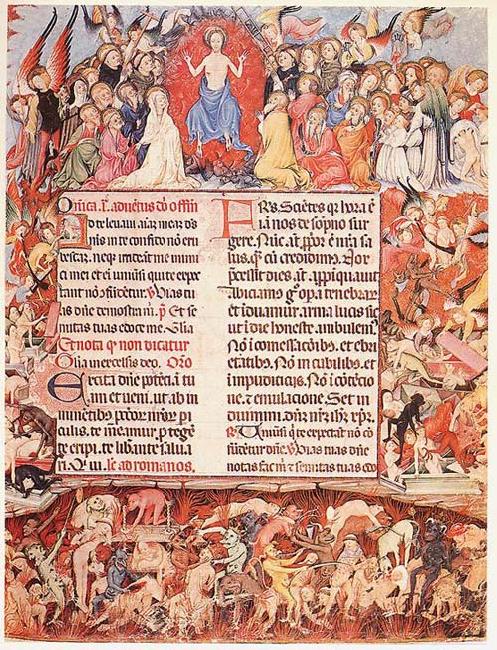 Dñica .i. aduētus dñi offm
Ad te leuaui aiaz meaz ds
ms in te confido nō eru
bescaz. neqz irrideāt me inimi
ci mei et ei uniūsi qui te expe
ctant nō 9fūdētur. Uias tu
as dñe demostra m. p Et se
mitas tuas edoce me. Glia
Et nota qz non dicatur
Glia in excelsis deo. Oro
Excita dñe potētiā tu
am et ueni. ut ab im
minētibz pctor nror pi
culis. te meamur. ptegē
te eripi. te libāute salua
ri. Qui. le ad romanos.
FRs. Sciētes qr hora ē
iā nos de sopno sur
gere. Nūc .n. ppor ē nrā sa
lus. qz cū credidimz. Nor
pcessit dies .n. appiquauit
Abiciamz g opa tenebrarz
et iduamur arma lucis sic
ut i die honeste ambulem9
Nō i comessacōibz. et ebri
etatibz. Nō in cubilibz. et
impudiciciis. Nō i cōtēcio
ne. z emulacione. Set in
duimini. dñz nrz ihz xpz.
R Uniūsi q te expectāt nō cō
fūdētur dñe. Uias tuas dñe
notas fac m z semitas tuas edo